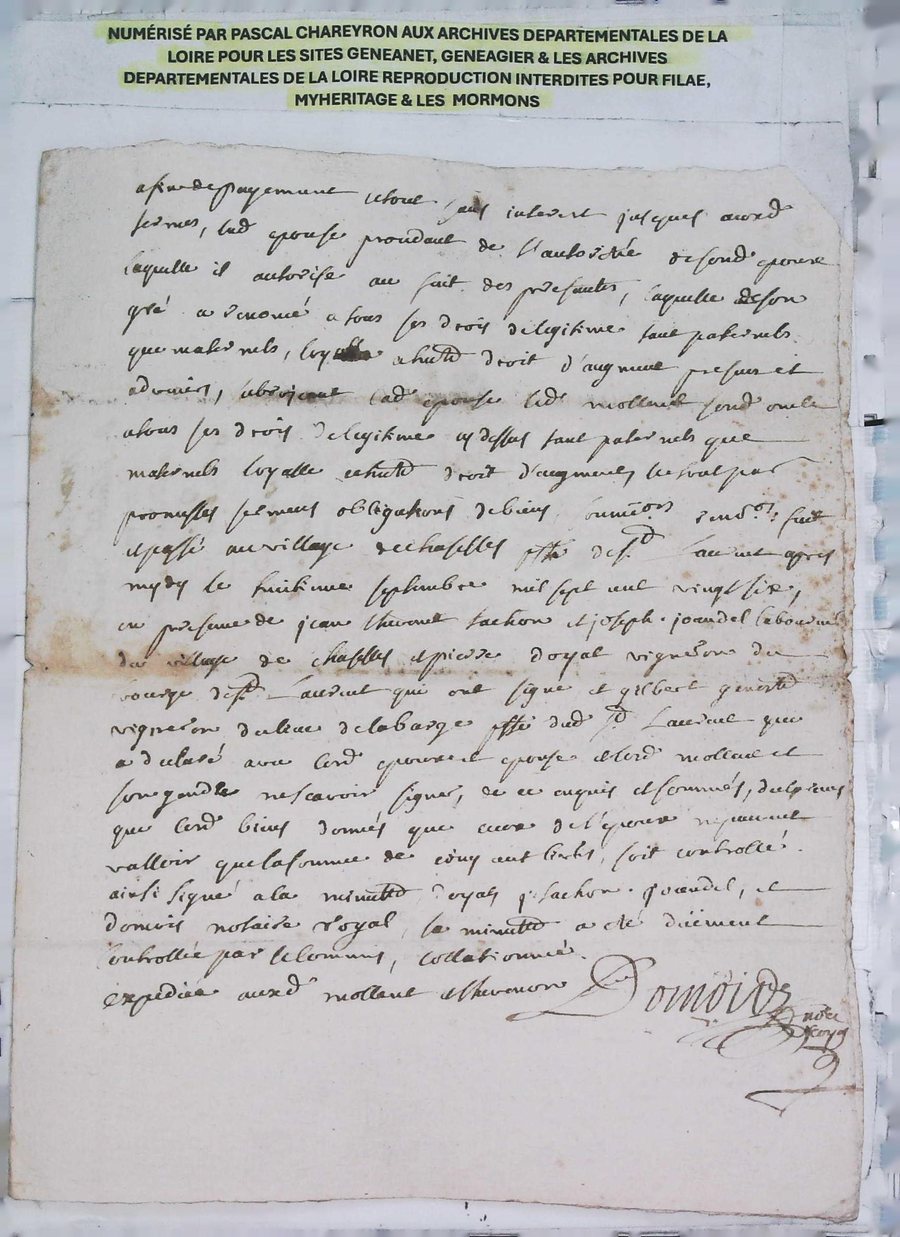 NUMÉRISÉ PAR PASCAL CHAREYRON AUX ARCHIVES DEPARTEMENTALES DE LA
LOIRE POUR LES SITES GENEANET, GENEAGIER & LES ARCHIVES
DEPARTEMENTALES DE LA LOIRE REPRODUCTION INTERDITES POUR FILAE,
MYHERITAGE & LES MORMONS
afin de payement le tout sans interest jusques auxd
termes, lad epouse procedant de l'autorité de sond epoux
laquelle il autorise au fait des presantes, laquelle de son
gré a renoncé a tous ses drois de legitime tant paternels
que maternels, a luitd droit d'augment presans et
advenir, lad epouse led mollent sond oncle
a tous ses drois de legitime cy dessus tant paternels que
maternels droit d'augment le tout par
promesses serment obligations de biens fait
et passé au village de chaselles psse de st Laurent apres
mydy le huitieme septembre mil sept cent vingt six,
en presence de jean tachon et joseph joandel laboureur
du village de chaselles et pierre doyat vigneron du
bourg de st Laurent qui ont signe et gilbert
vigneron du lieu de labarge psse dud st Laurent que
a declaré avec lesd epoux et epouse et led mollent et
son gendre ne scavoir signer, de ce enquis et sommés, declarans
que lesd biens donnés que ceux de l'epoux ne peuvent
valloir que la somme de cinq cent livres, soit controllé
ainsi signé a la minutte doyat, p. tachon, joandel, et
domois notaire royal, la minutte a été düement
controllée par le commis, collationnée
expediée auxd mollent
Domois